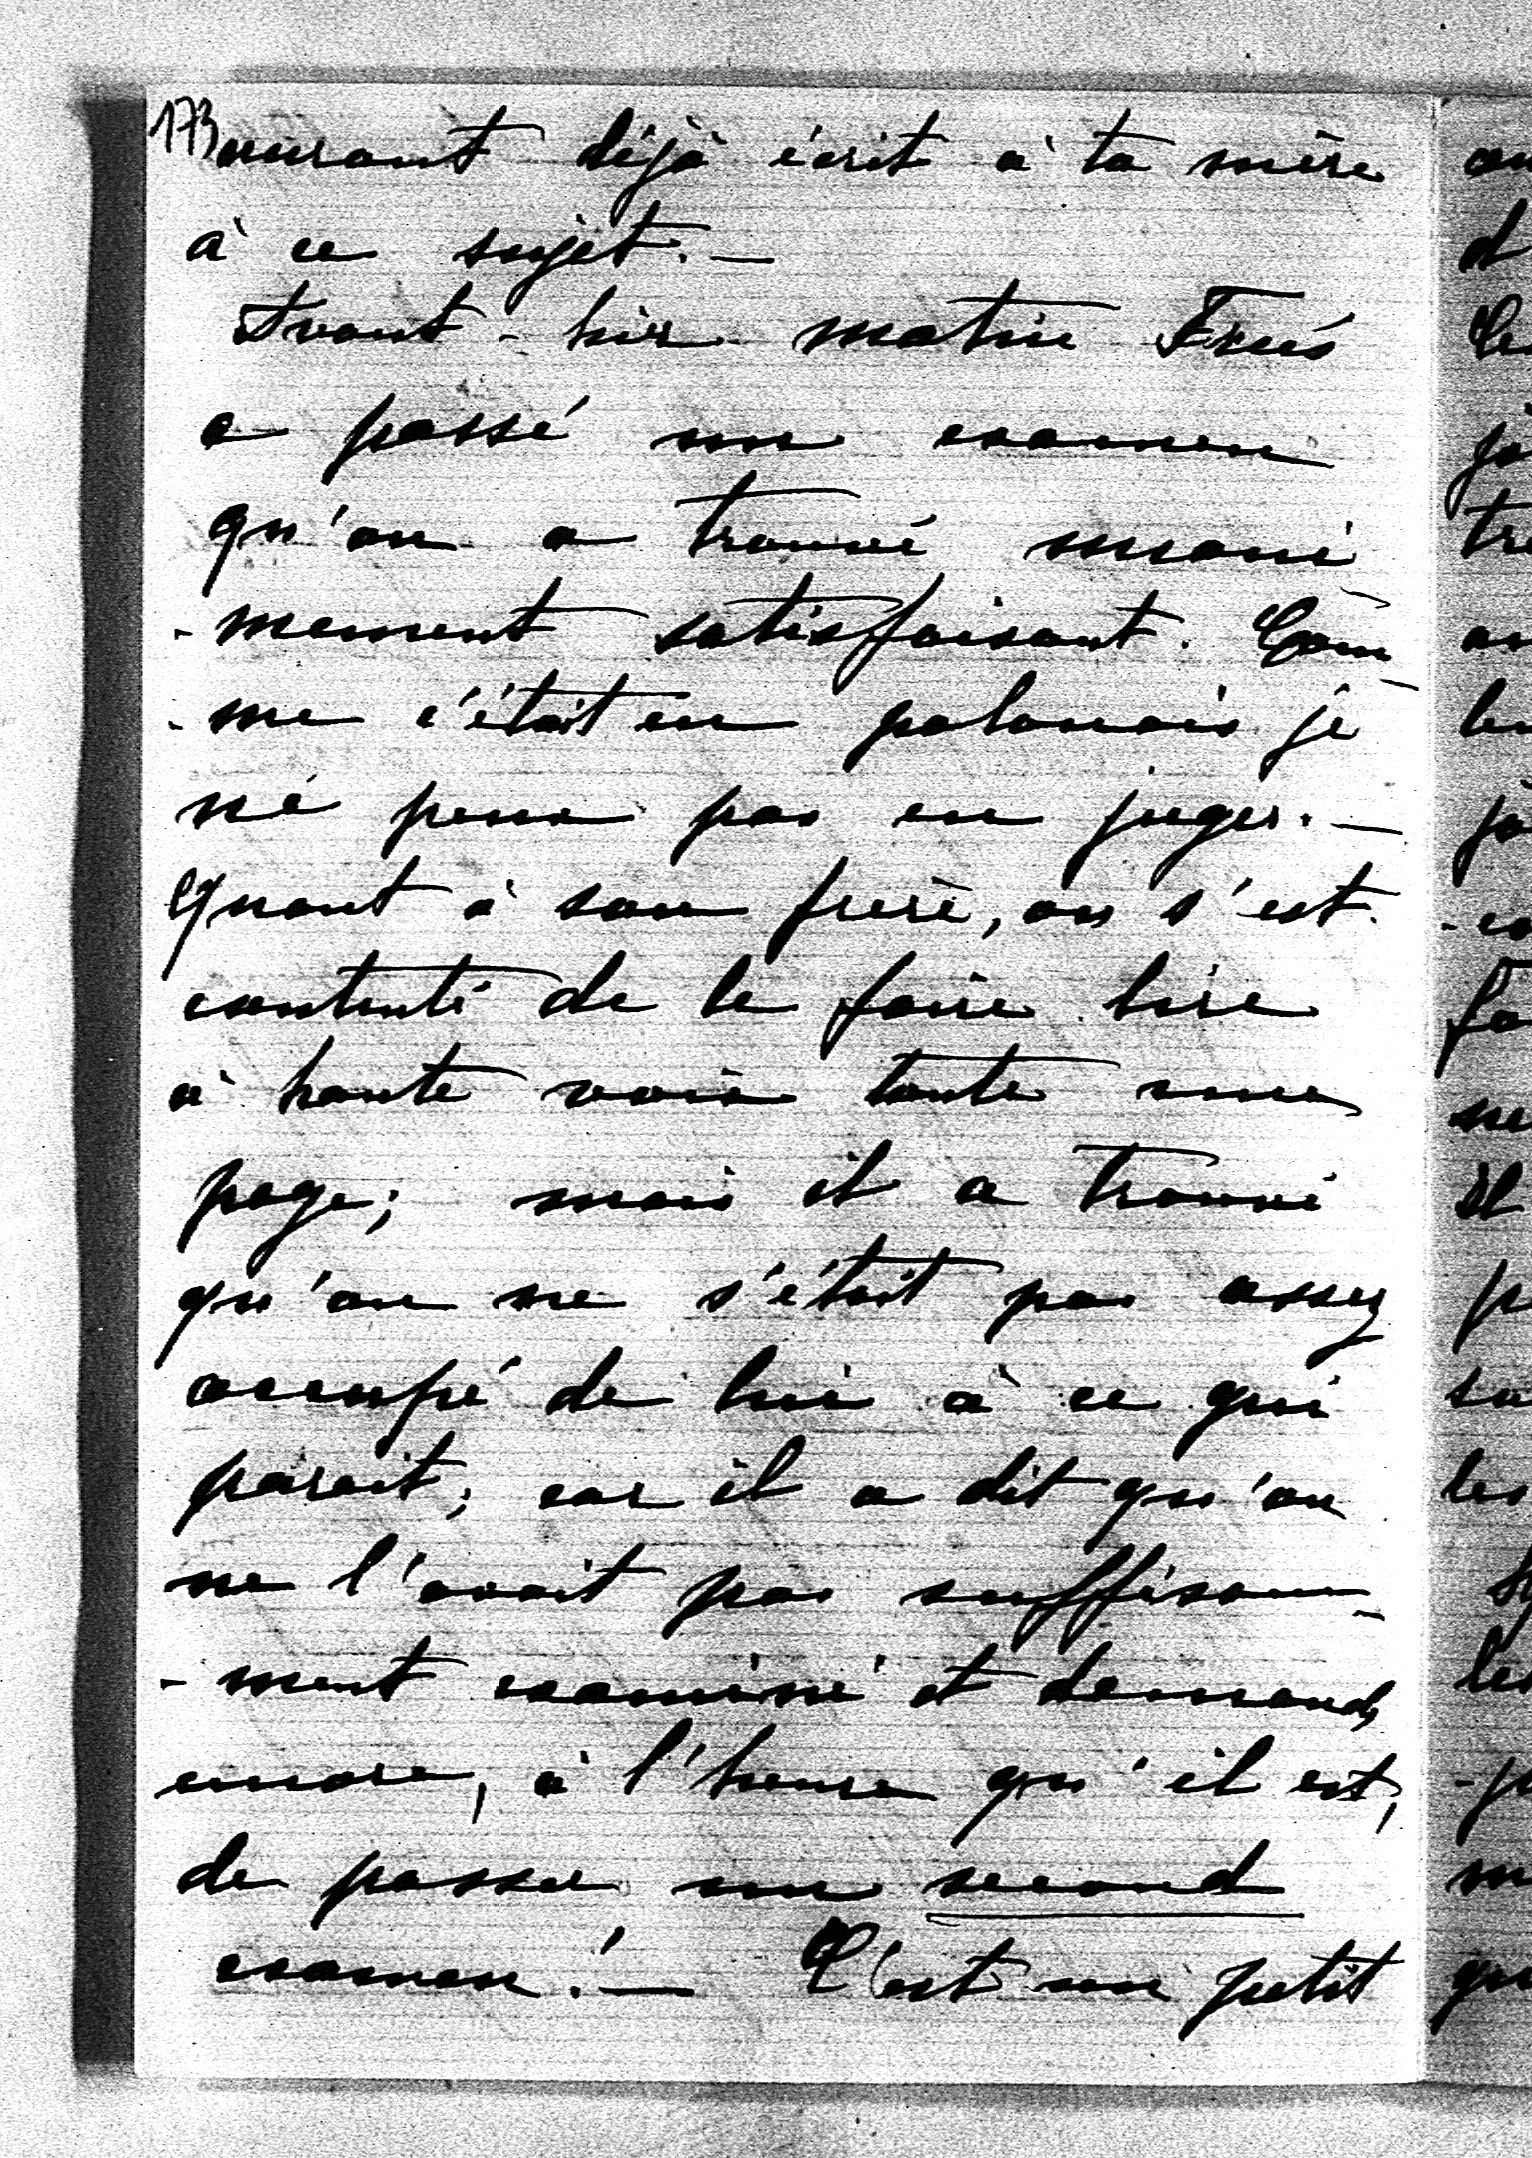 173
auront déjà écrit à ta mère
à ce sujet. —
Avant-hier matin
a passé un examen
qu'on a trouvé unani
-mement satisfaisant. Com
-me c'était en polonais je
ne peux pas en juger. —
Quant à son frère, on s'est
contenté de le faire lire
à haute voix toute une
page; mais il a trouvé
qu'on ne s'était pas assez
occupé de lui à ce qui
parait; car il a dit qu'on
ne l'avait pas suffisam-
-ment examiné et demande
encore, à l'heure qu'il est,
de passer un second
examen! — C'est un petit